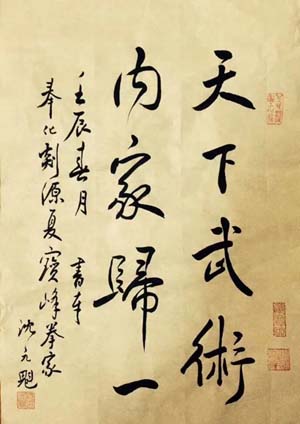 天下武術
内家歸一
壬辰春月 書奉
奉化剡源夏寶峰拳家
沈元魁